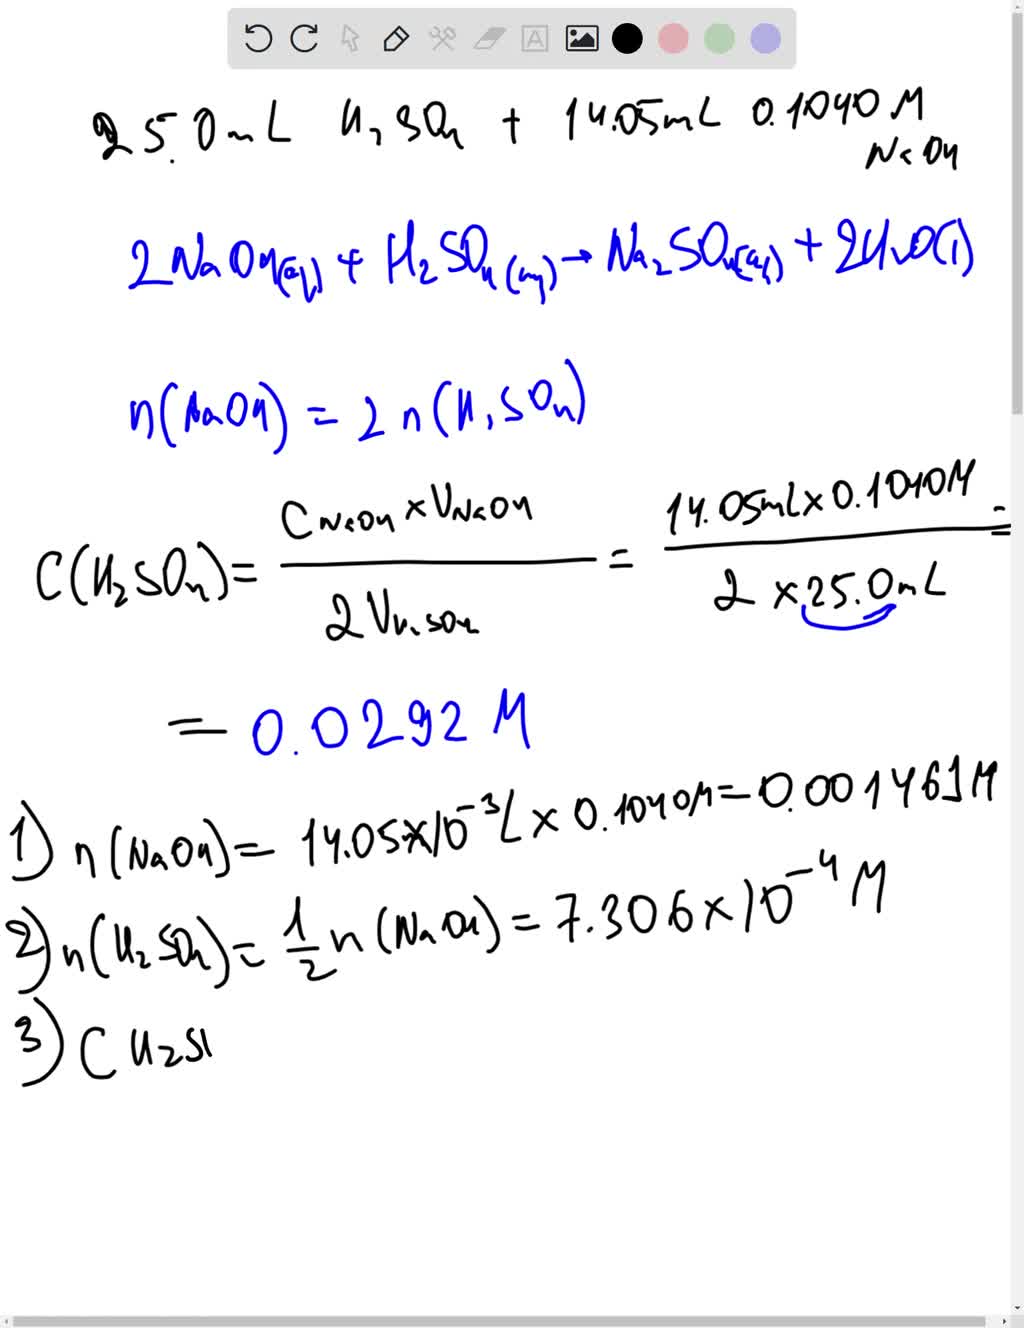 25.0mL H2SO4 + 14.05mL 0.1040M
NaOH
2NaOH(aq) + H2SO4(aq) → Na2SO4(aq) + 2H2O(l)
n(NaOH) = 2n(H2SO4)
C(H2SO4) = CNaOH × VNaOH / 2VH2SO4 = 14.05mL × 0.1040M / 2 × 25.0mL =
= 0.0292 M
1) n(NaOH) = 14.05×10^-3 L × 0.1040M = 0.001461M
2) n(H2SO4) = 1/2 n(NaOH) = 7.306 × 10^-4 M
3) C H2S